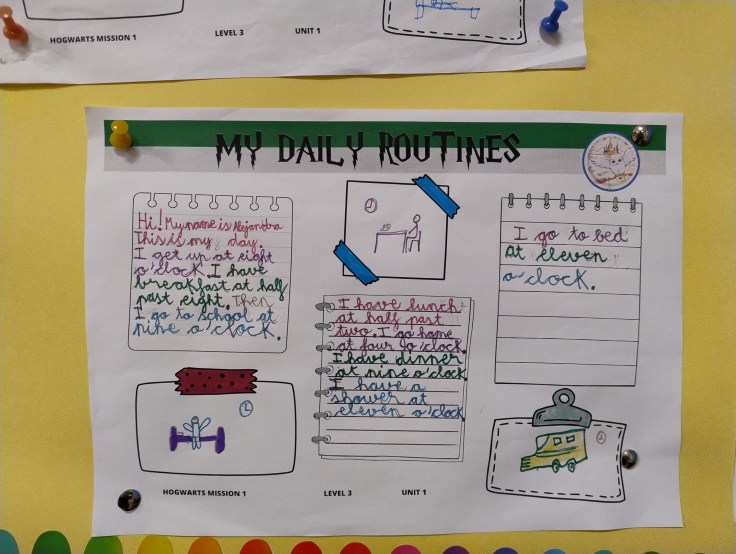 HOGWARTS MISSION 1
LEVEL 3
UNIT 1
MY DAILY ROUTINES
Hi! My name is Alejandra
This is my day.
I get up at eight
o'clock. I have
breakfast at half
past eight. Then
I go to school at
nine o'clock.
I have lunch
at half past
two. I go home
at four o'clock.
I have dinner
at nine o'clock.
I have a
shower at
eleven o'clock
I go to bed
at eleven
o'clock.
HOGWARTS MISSION 1
LEVEL 3
UNIT 1